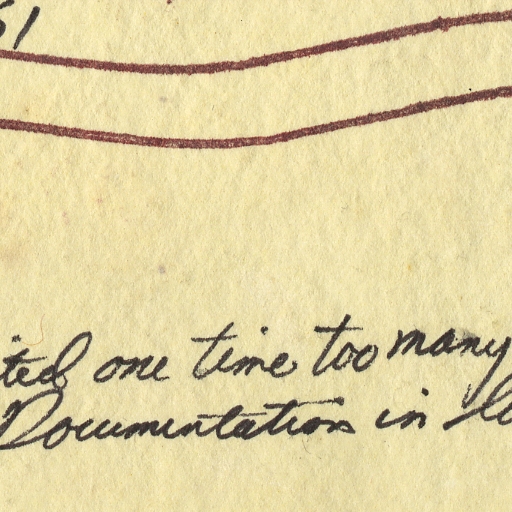 51
ited one time too many
Documentation in